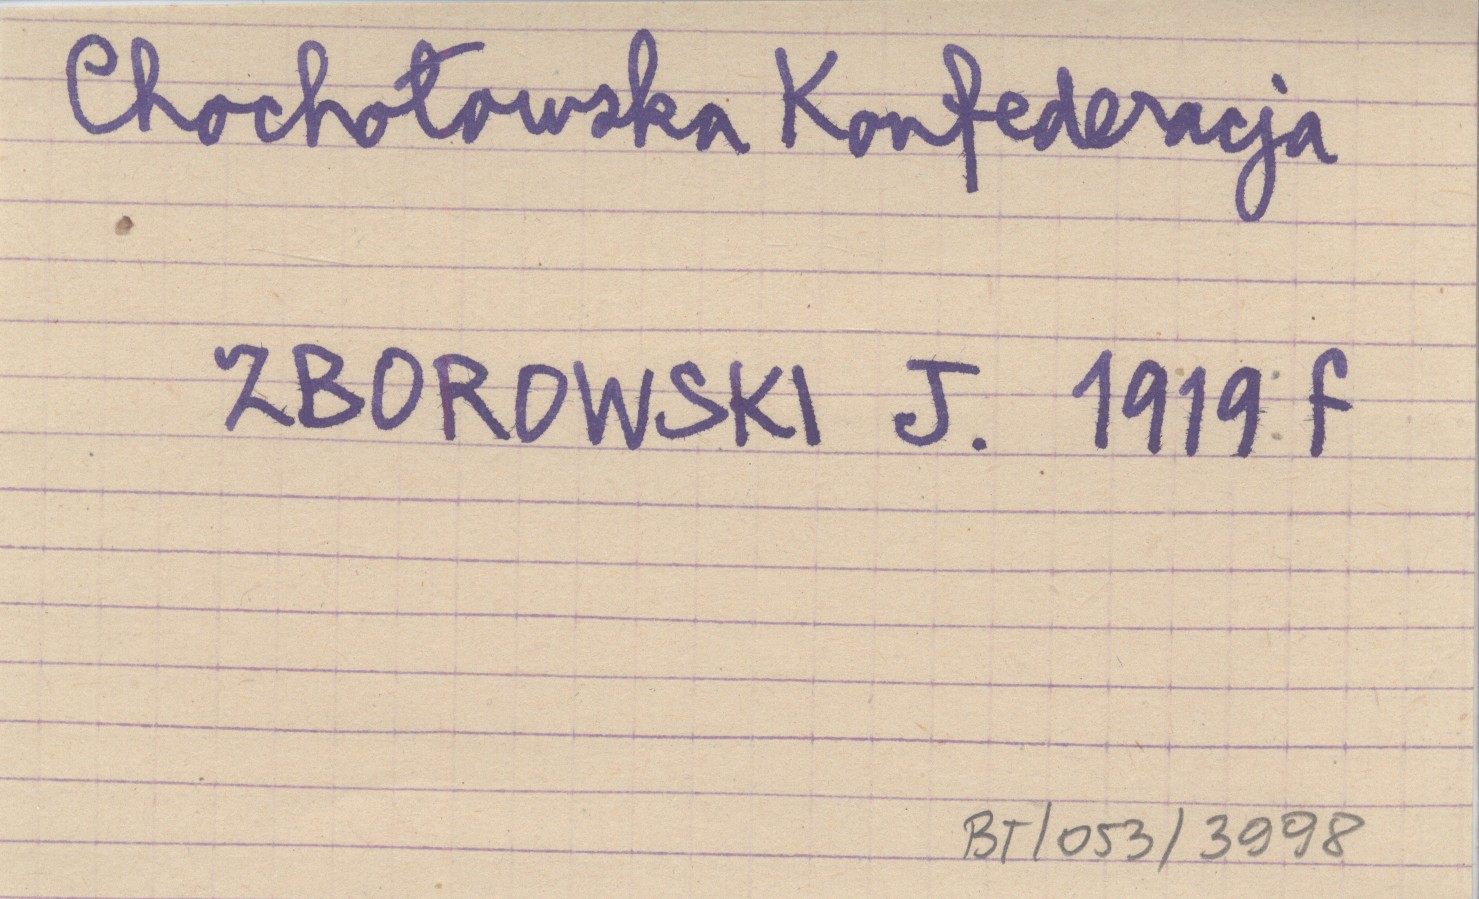 Chochołowska Konfederacja
ZBOROWSKI J. 1919 f
BT/053/3998